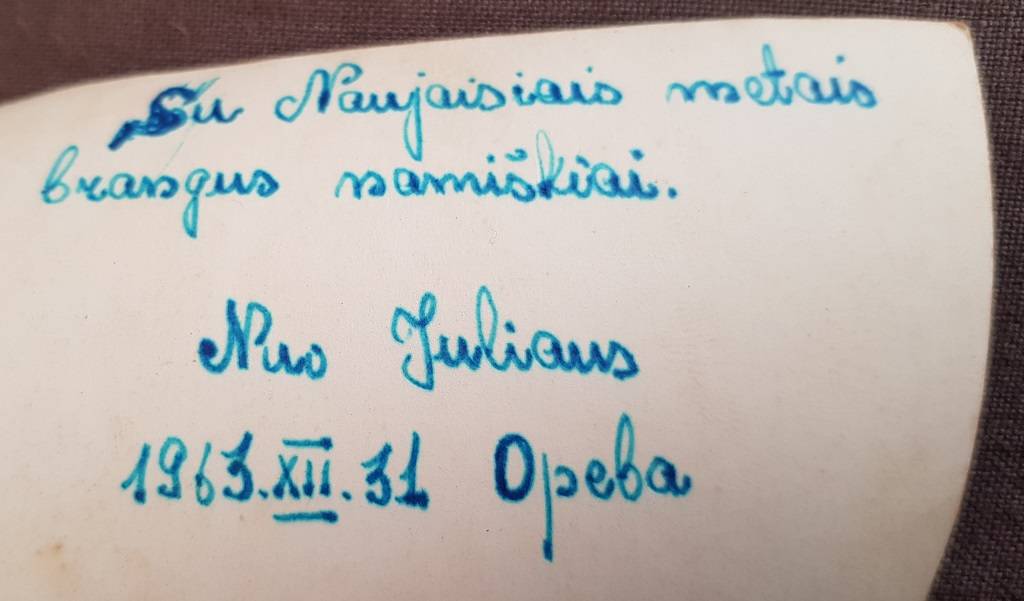 Su Naujaisiais metais
brangus namiškiai.
Nuo Juliaus
1963.XII.31 Орева